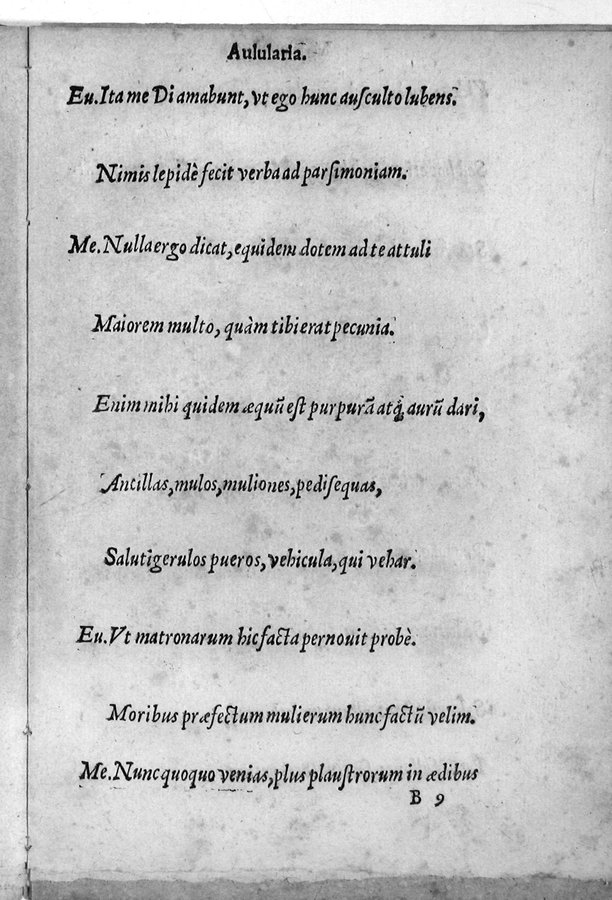 Aulularia.
Eu. Ita me Di amabunt, vt ego hunc auſculto lubens.
Nimis lepidè fecit verba ad parſimoniam.
Me. Nulla ergo dicat, equidem dotem ad te attuli
Maiorem multo, quàm tibi erat pecunia.
Enim mihi quidem æquũ eſt purpurã atq́; aurũ dari,
Ancillas, mulos, muliones, pediſequas,
Salutigerulos pueros, vehicula, qui vehar.
Eu. Vt matronarum hic facta pernouit probè.
Moribus præfectum mulierum hunc factũ velim.
Me. Nunc quoquo venias, plus plauſtrorum in ædibus
B 9